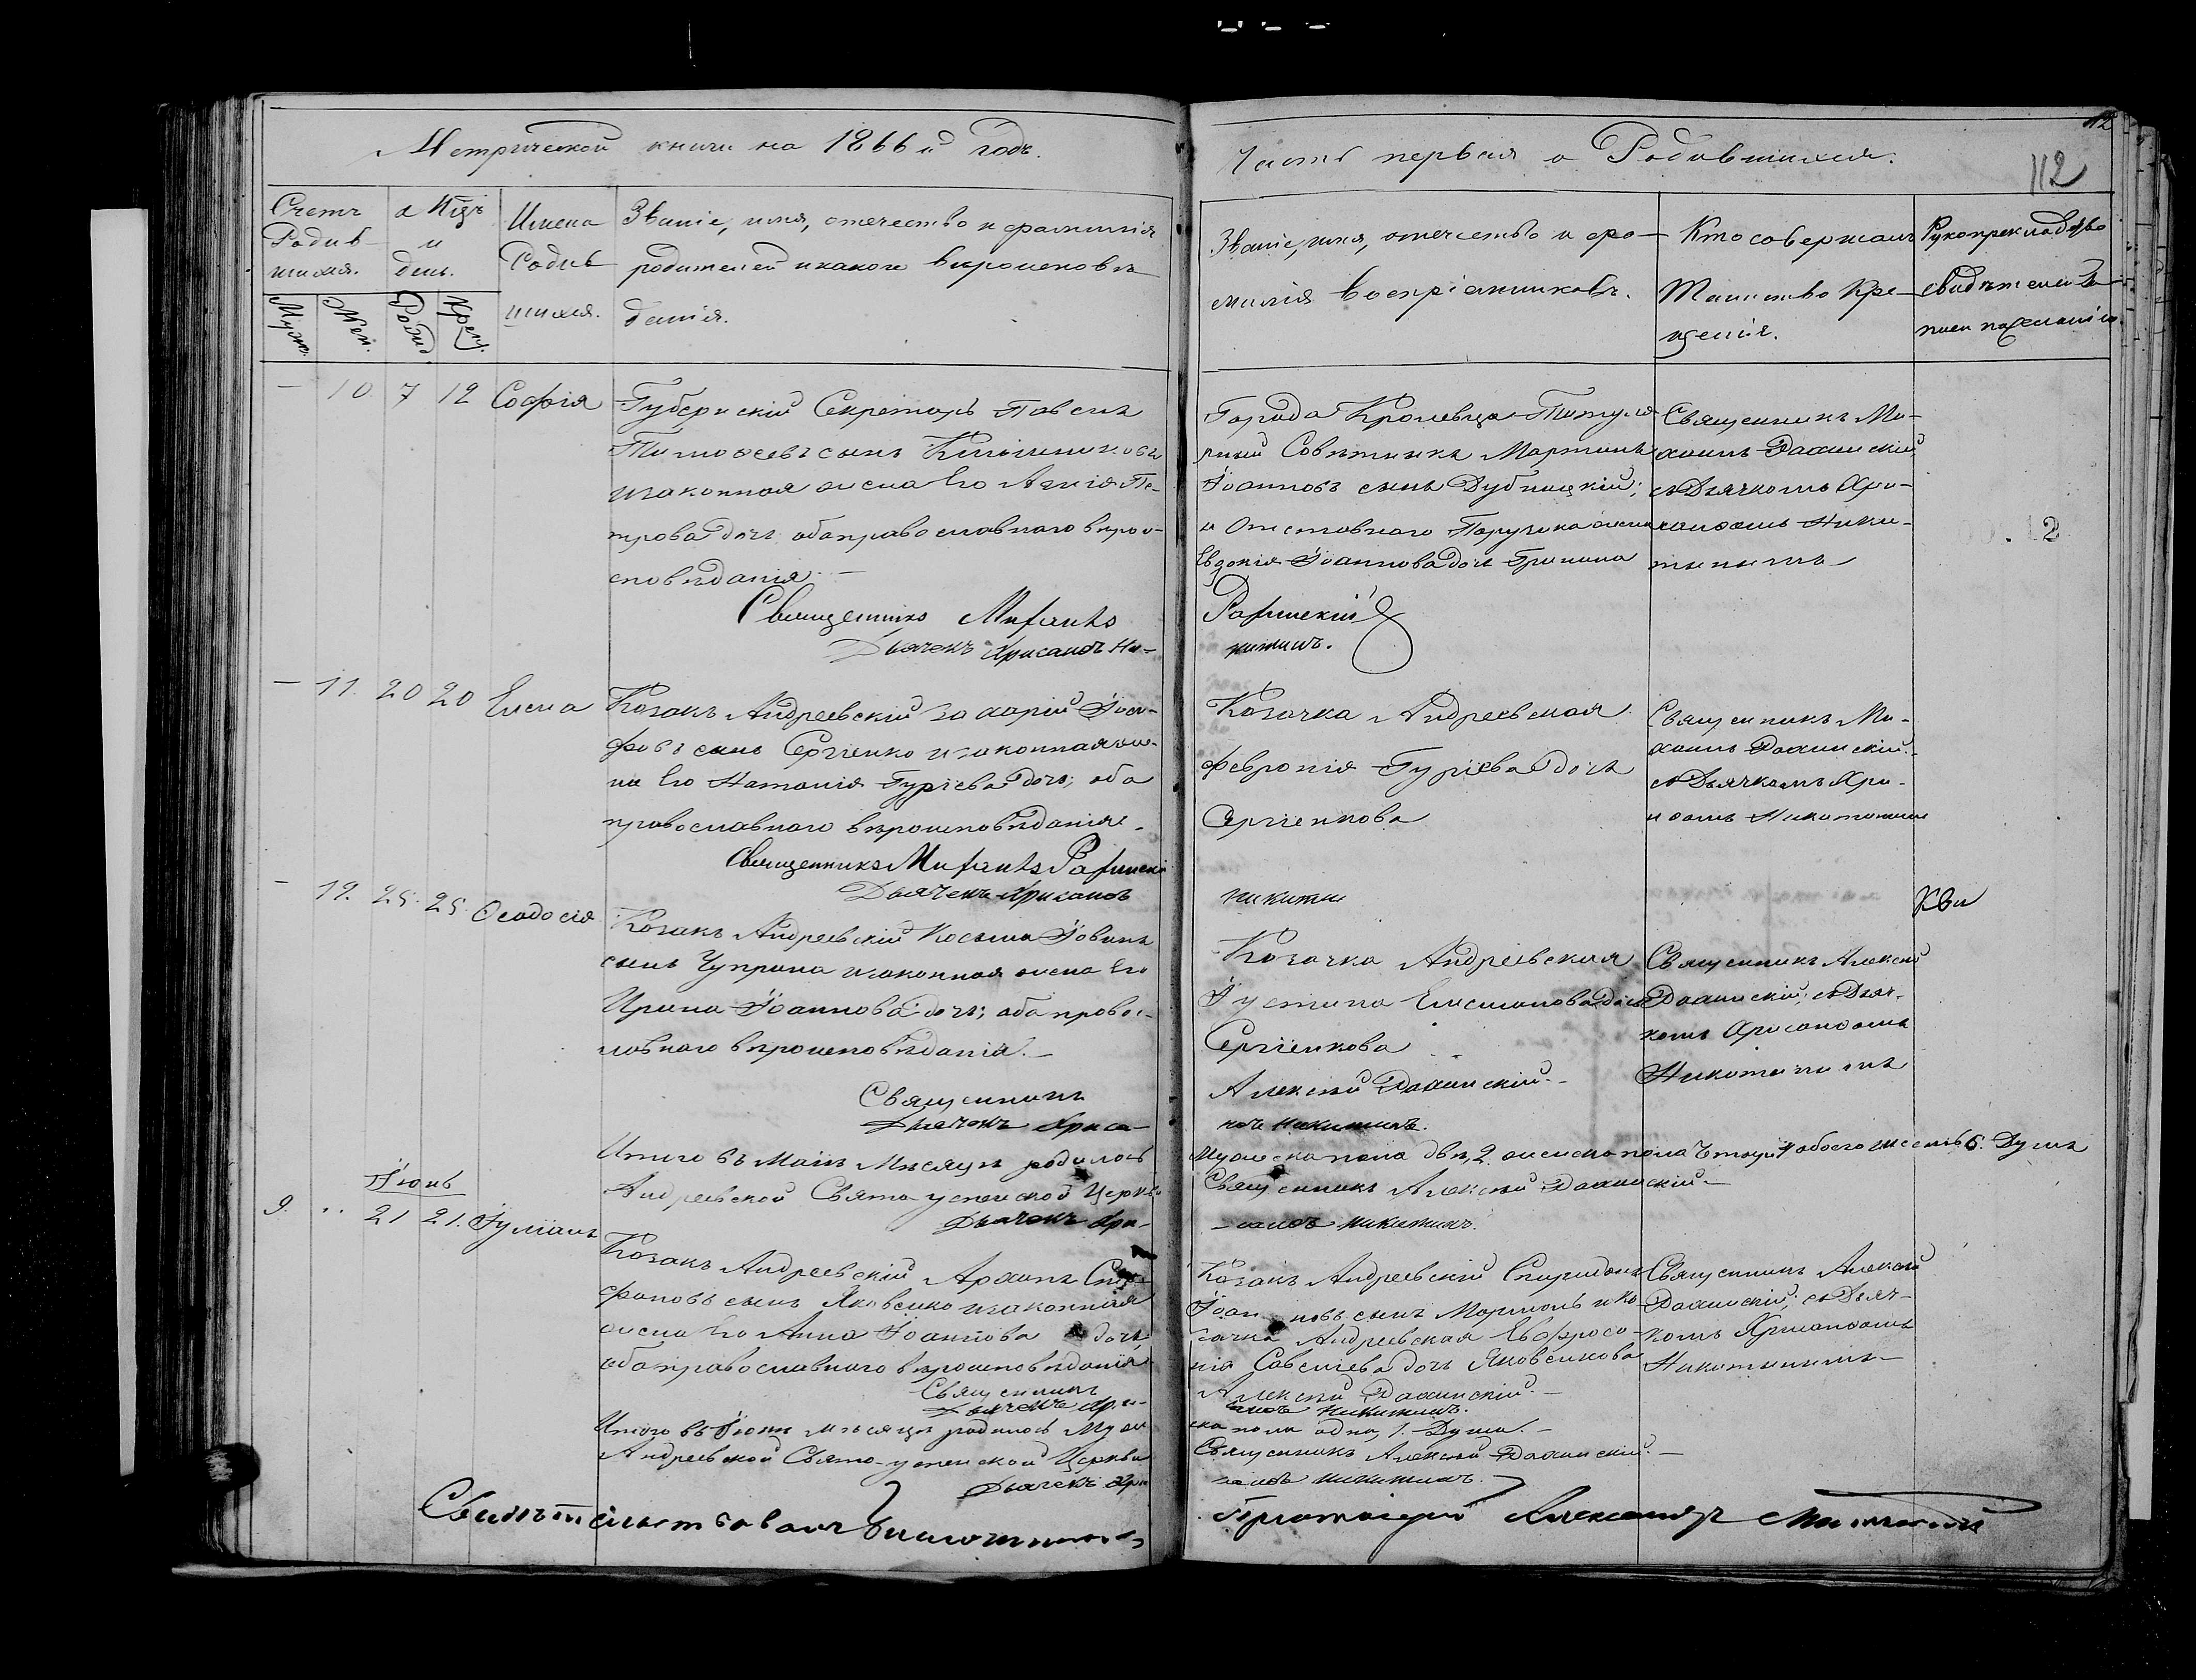 Метрической книги на 1866й годъ.
Часть первая о Родившихся.
12
112
Счетъ Родив-
шихся.
Муж.
Жен.
и
день.
Рожд.
Крещ.
Имена
Родив
шихся.
Званіе, имя, отчество и фамилія
родителей и какого вѣроисповѣ
данія.
Званіе, имя, отчество и фа-
милія воспріемниковъ.
Кто совершалъ
Таинство Кре-
щенія.
Рукоприкладство
свидѣтелей за-
писи по желанію.
— 10 7 12 Софія
Губернскій Секретарь Павелъ
Тимофеевъ сынъ
и законная жена Его Агнія Пе-
трова дочь оба православнаго вѣрои-
сповѣданія. —
Священникъ Михаилъ
Дьячекъ Хрисанѳъ Ни-
Города Кролевца Титуля
рный Совѣтникъ Мартинъ
Іоанновъ сынъ Дубницкій;
и Отставнаго Поручика жена
Евдокія Іоаннова дочь
Священникъ Ми-
хаилъ
съ Дьячкомъ Хри-
санѳомъ Ники-
тинымъ
китинъ.
12
— 11. 20 20 Елена
Козакъ Андреевскій Захарій Іоси-
фовъ сынъ Сергіенко и законная же-
на Его Наталія Гуріева дочь; оба
православнаго вѣроисповѣданія.
Священникъ Михаилъ
Дьячекъ Хрисанѳъ
Козачка Андреевская
Февронія Гуріева дочь
Сергіенкова
Священникъ Ми-
хаилъ
съ Дьячкомъ Хри-
Никитинымъ
Никитин
— 12. 25. 25. Ѳеодосія
Козакъ Андреевскій Косьма Іовинъ
сынъ Чуприна и законная жена Его
Ирина Іоаннова дочь; оба правос-
лавнаго вѣроисповѣданія. —
Священникъ
Дьячекъ Хриса-
Козачка Андреевская
Іустина дочь
Сергіенкова
Алексій
нѳъ Никитинъ.
Священникъ Алексій
съ Дьяч-
комъ Хрисанѳомъ
Никитинымъ
Итого въ Маѣ Мѣсяцѣ родилось
Мужеска пола двѣ, 2. женска пола Четыре 4 обоего шесть 6. Душъ
Андреевской Свято-успенской Церкви
Священникъ Алексій
Дьячекъ Хри-
-санѳъ Никитинъ.
Іюнь
9. " 21 21. Іуліанъ
Козакъ Андреевскій Архипъ
сынъ Яковенко и законная
жена Его Анна Іоаннова дочь,
оба православнаго вѣроисповѣданія
Священникъ
Дьячекъ Хри-
Козакъ Андреевскій Спиридонъ
Іоанновъ сынъ и ко-
зачка Андреевская Евфросі-
нія Савеліева дочь Яковенкова
Алексій
санѳъ Никитинъ.
Священникъ Алексій
съ Дьяч-
комъ Хрисанѳомъ
Никитинымъ
Итого въ Іюнѣ мѣсяцѣ родилось Муже
ска пола одна, 1. Душа. —
Андреевской Свято-успенской Церкви
Священникъ Алексій
Дьячекъ Хри
санѳъ Никитинъ.
Свидѣтельствовалъ Благочинный
Протоіерей Александръ